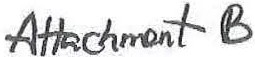 Attachment B